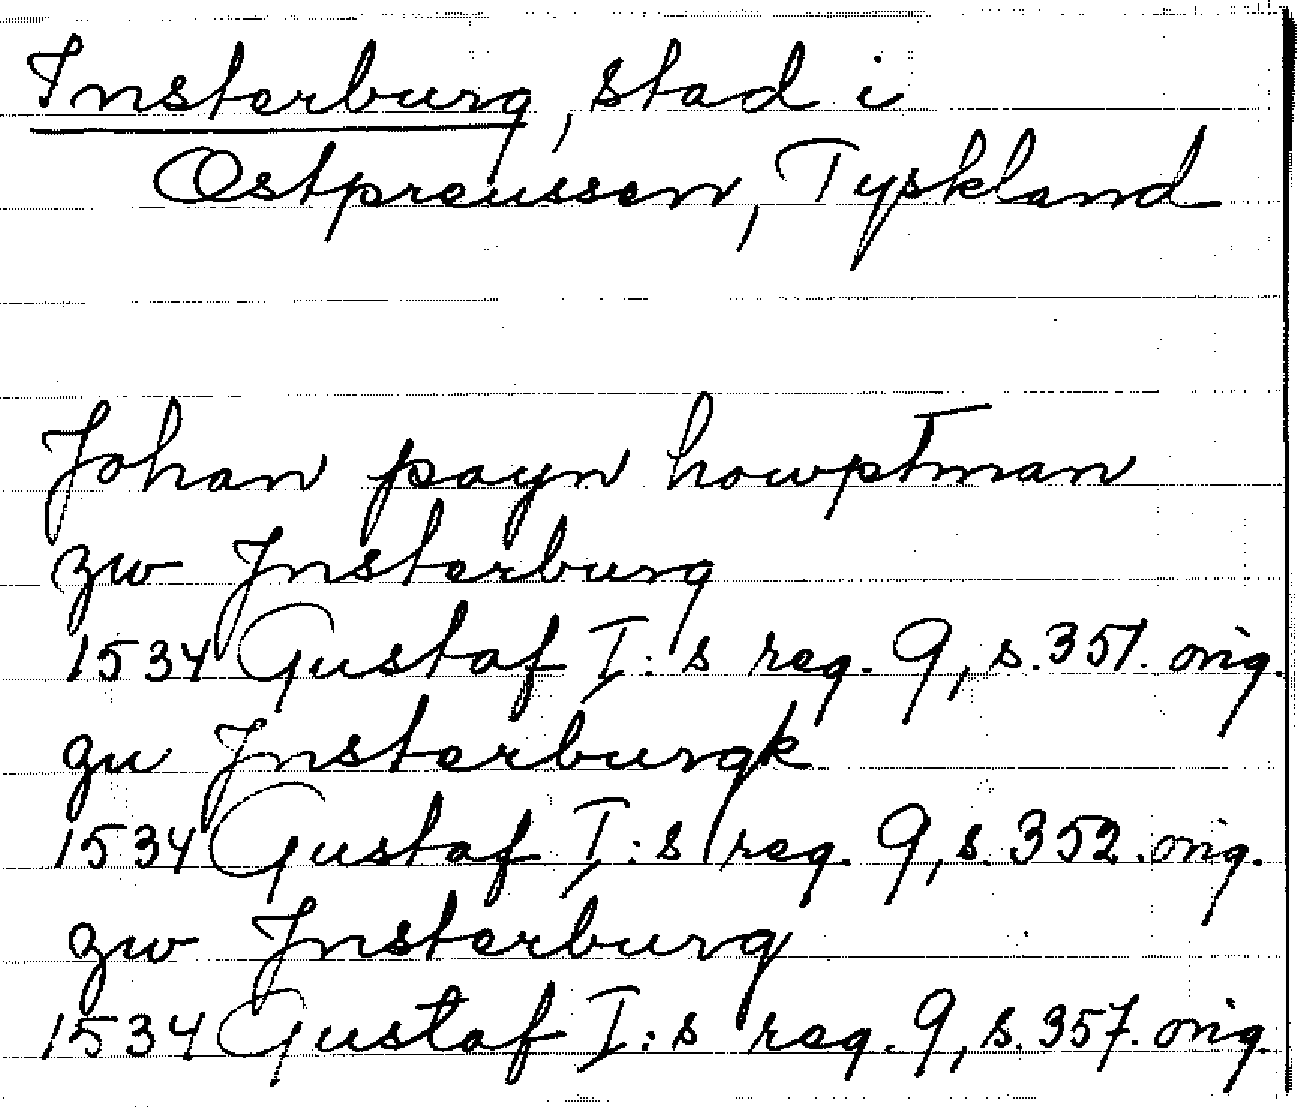 Insterburg, stad i
Ostpreussen, Tyskland
Johan payn howptman
zw Jnsterburg
1534 Gustaf I:s reg. 9, s. 351. orig.
zu Jnsterburgk
1534 Gustaf I:s reg. 9, s. 352. orig.
zw Jnsterburg
1534 Gustaf I:s reg. 9, s. 357. orig.